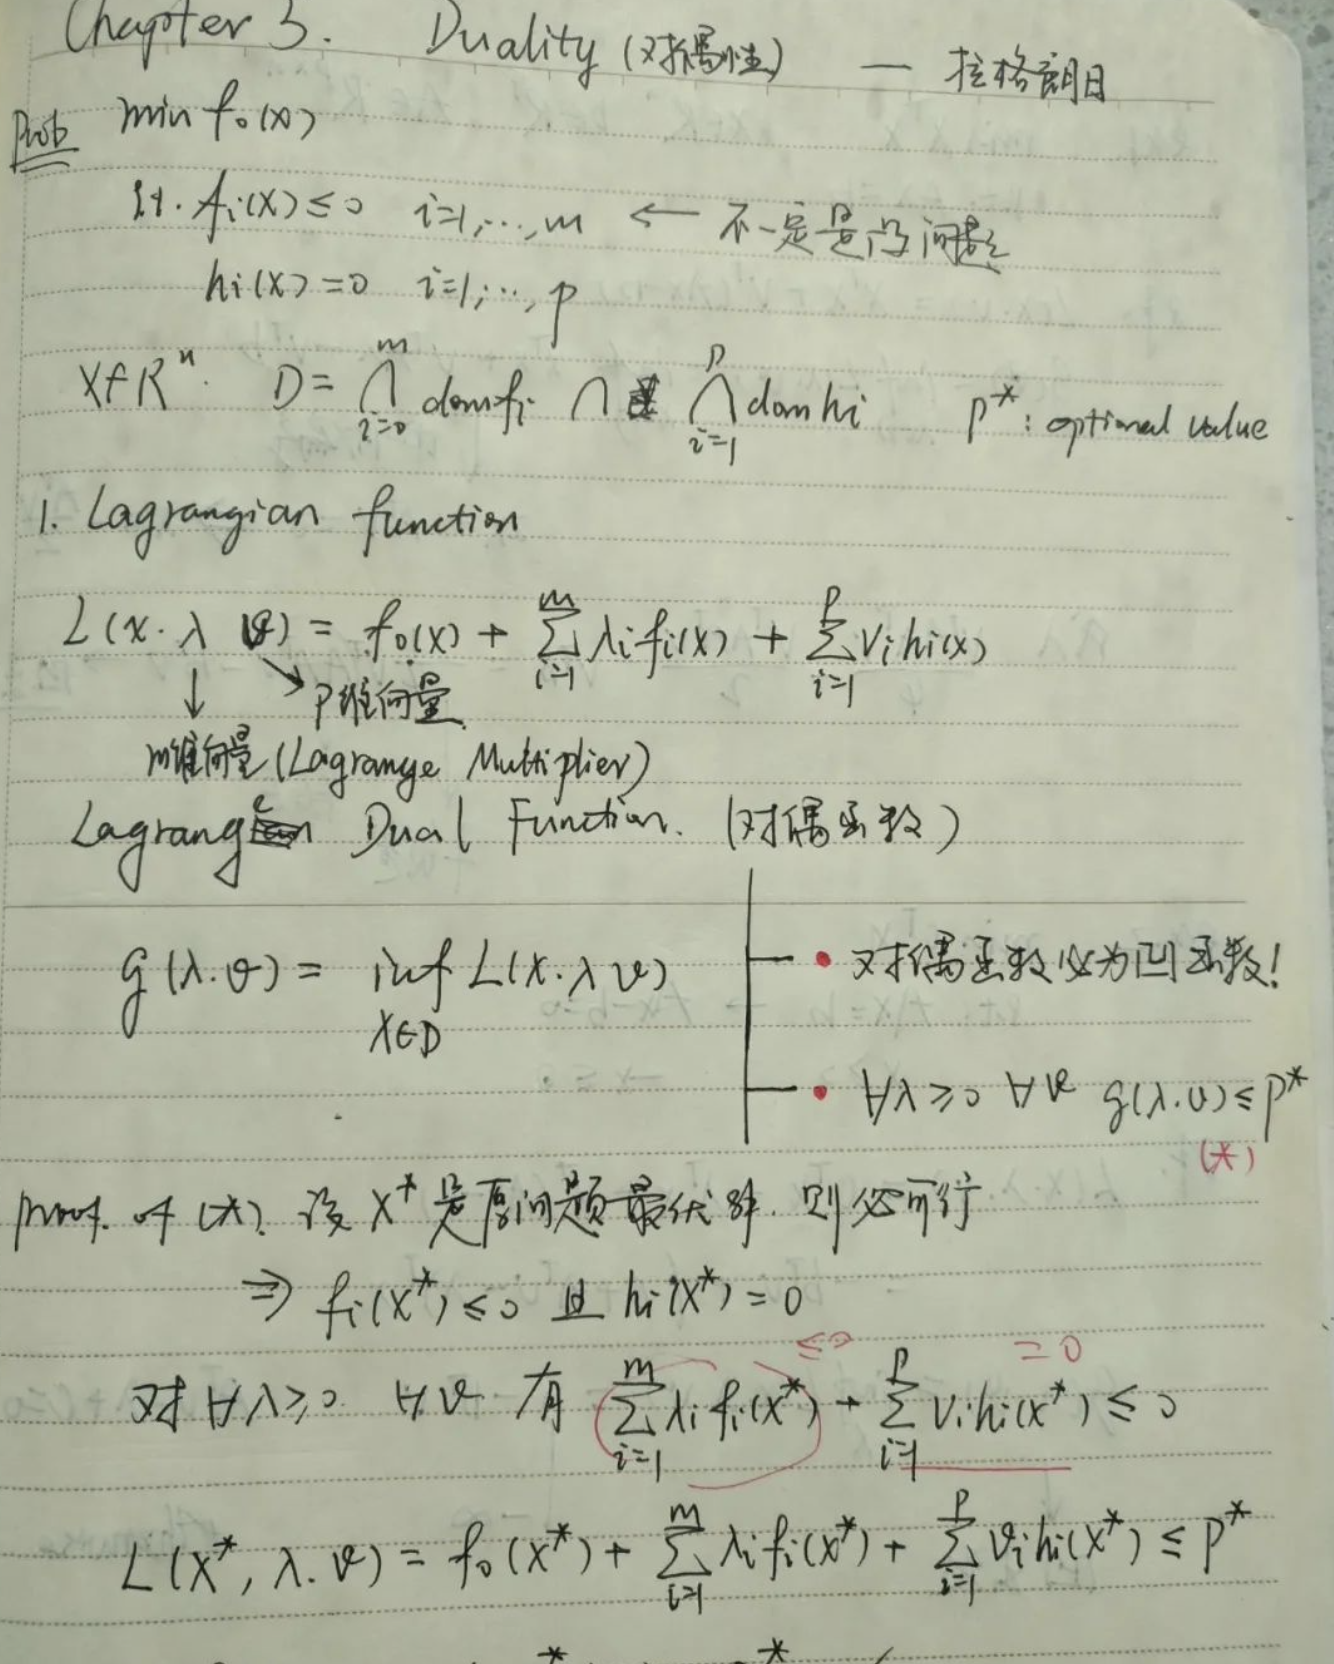 Chapter 3. Duality (对偶性) — 拉格朗日
Prob min f₀(x)
s.t. fᵢ(x) ≤ 0 i=1,…,m ← 不一定是凸问题
hᵢ(x) = 0 i=1,…,p
X∈Rⁿ. D = ⋂_{i=0}^{m} dom fᵢ ∩ ⋂_{i=1}^{p} dom hᵢ p*: optimal value
1. Lagrangian function
L(x. λ v) = f₀(x) + ∑_{i=1}^{m} λᵢ fᵢ(x) + ∑_{i=1}^{p} vᵢ hᵢ(x)
↓ ↘ p维向量
m维向量 (Lagrange Multiplier)
Lagrange Dual Function. (对偶函数)
g(λ.v) = inf_{X∈D} L(x.λ v)
• 对偶函数必为凹函数!
• ∀λ≥0 ∀v g(λ.v) ≤ p*
(*)
proof. of (*). 设 x* 是原问题最优解. 则必可行
⇒ fᵢ(x*) ≤ 0 且 hᵢ(x*) = 0
≤0 =0
对 ∀λ≥0 ∀v 有 ∑_{i=1}^{m} λᵢ fᵢ(x*) + ∑_{i=1}^{p} vᵢ hᵢ(x*) ≤ 0
L(x*, λ. v) = f₀(x*) + ∑_{i=1}^{m} λᵢ fᵢ(x*) + ∑_{i=1}^{p} vᵢ hᵢ(x*) ≤ p*